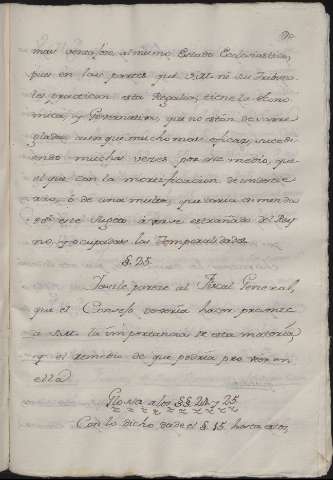 mas ventajoso al mismo Estado Eclesiastico,
pues en las partes que S.M. ni sus Tribuna-
les practican esta Regalia, tiene la Econo-
mica, y Governativa, que no están de va arre-
glada, aunque mucho mas eficaz, sucedi-
endo muchas veces por este medio, que
el que con la mortificacion de un
, ó de una multa, que varia
este Sugeto á verse extrañado del Rey-
no, y ocupadas las Temporalidades.
§. 25.
Tanle parece al Fiscal General,
que el Consejo deveria hacer presente
a S.M. la importancia de esta materia,
y el remedio de que podria proveer en
ella
Glosa a los §§ 24. y 25.
Con lo dicho desde el §. 15. hasta estos,